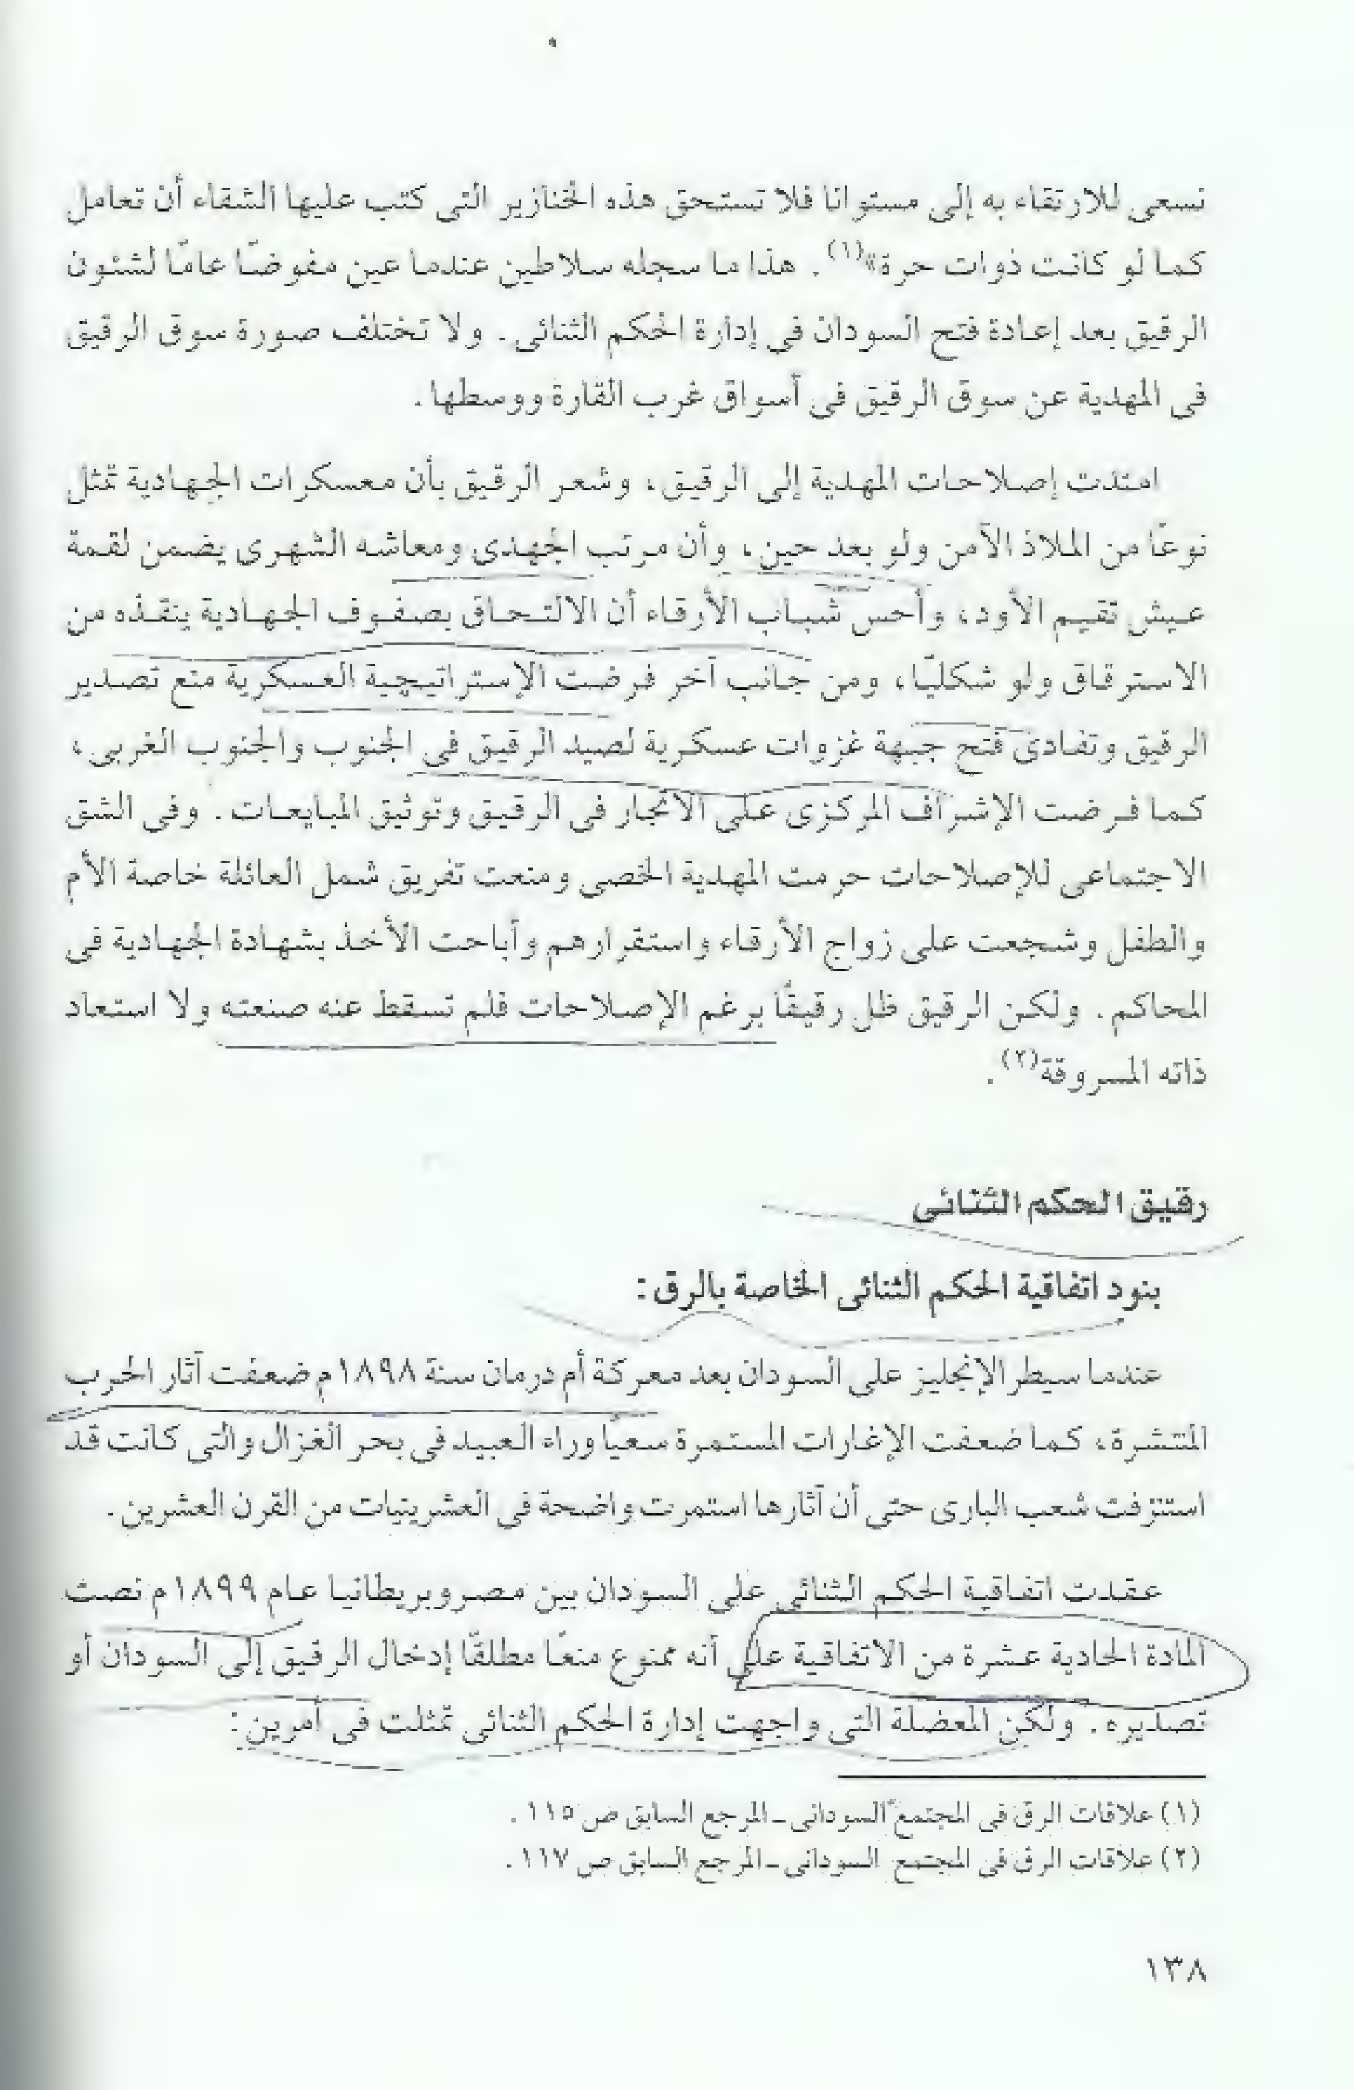 نسعى للارتقاء به إلى مستوانا فلا تستحق هذه الخنازير التى كتب عليها الشقاء أن تعامل
كما لو كانت ذوات حرة»(١). هذا ما سجله سلاطين عندما عين مفوضًا عامًا لشئون
الرقيق بعد إعادة فتح السودان فى إدارة الحكم الثنائى. ولا تختلف صورة سوق الرقيق
فى المهدية عن سوق الرقيق فى أسواق غرب القارة ووسطها.
امتدت إصلاحات المهدية إلى الرقيق، وشعر الرقيق بأن معسكرات الجهادية تمثل
نوعًا من الملاذ الآمن ولو بعد حين، وأن مرتب الجهدى ومعاشه الشهرى يضمن لقمة
عيش تقيم الأود، وأحس شباب الأرقاء أن الالتحاق بصفوف الجهادية ينقذه من
الاسترقاق ولو شكليًا، ومن جانب آخر فرضت الإستراتيجية العسكرية منع تصدير
الرقيق وتفادى فتح جبهة غزوات عسكرية لصيد الرقيق فى الجنوب والجنوب الغربى،
كما فرضت الإشراف المركزى على الاتجار فى الرقيق وتوثيق المبايعات. وفى الشق
الاجتماعى للإصلاحات حرمت المهدية الخصى ومنعت تفريق شمل العائلة خاصة الأم
والطفل وشجعت على زواج الأرقاء واستقرارهم وأباحت الأخذ بشهادة الجهادية فى
المحاكم. ولكن الرقيق ظل رقيقًا برغم الإصلاحات فلم تسقط عنه صنعته ولا استعاد
ذاته المسروقة(٢).
رقيق الحكم الثنائى
بنود اتفاقية الحكم الثنائى الخاصة بالرق:
عندما سيطر الإنجليز على السودان بعد معركة أم درمان سنة ١٨٩٨م ضعفت آثار الحرب
المنتشرة، كما ضعفت الإغارات المستمرة سعيًا وراء العبيد فى بحر الغزال والتى كانت قد
استنزفت شعب البارى حتى أن آثارها استمرت واضحة فى العشرينيات من القرن العشرين.
عقدت اتفاقية الحكم الثنائى على السودان بين مصر وبريطانيا عام ١٨٩٩م نصت
المادة الحادية عشرة من الاتفاقية على أنه ممنوع منعًا مطلقًا إدخال الرقيق إلى السودان أو
تصديره. ولكن المعضلة التى واجهت إدارة الحكم الثنائى تمثلت فى أمرين:
(١) علاقات الرق فى المجتمع السودانى ـ المرجع السابق ص ١١٥.
(٢) علاقات الرق فى المجتمع السودانى ـ المرجع السابق ص ١١٧.
١٣٨